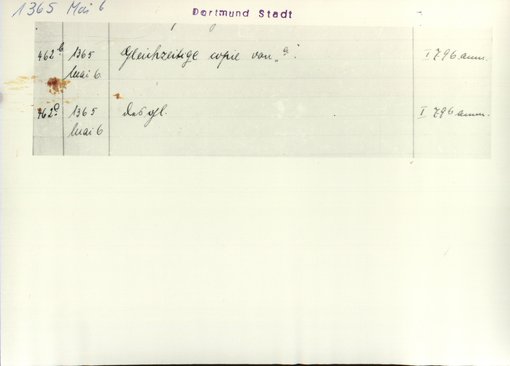 1365 Mai 6
Dortmund Stadt
462b 1365 Gleichzeitige copie von „a“. I 796 anm.
Mai 6
462c 1365 desgl. I 796 anm.
Mai 6